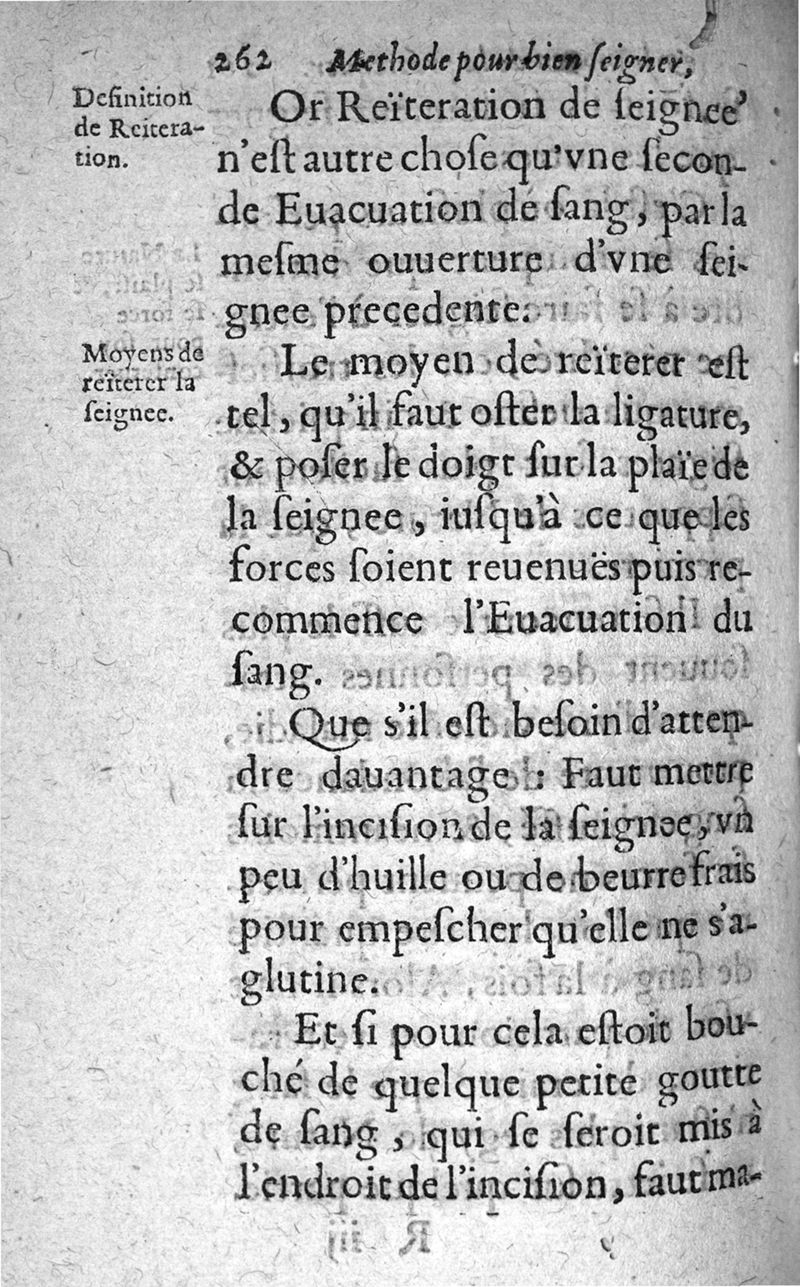 262 Methode pour bien ſeigner,
Definition
de Reitera-
tion.
Or Reïteration de ſeignee
n'eſt autre choſe qu'vne ſecon-
de Euacuation de ſang, par la
meſme ouuerture d'vne ſei-
gnee precedente.
Moyens de
reïterer la
ſeignee.
Le moyen de reïterer eſt
tel, qu'il faut oſter la ligature,
& poſer le doigt ſur la plaïe de
la ſeignee, iuſqu'à ce que les
forces ſoient reuenuës puis re-
commence l'Euacuation du
ſang.
Que s'il eſt beſoin d'atten-
dre dauantage : Faut mettre
ſur l'inciſion de la ſeignee, vn
peu d'huille ou de beurre frais
pour empeſcher qu'elle ne s'a-
glutine.
Et ſi pour cela eſtoit bou-
ché de quelque petite goutte
de ſang, qui ſe ſeroit mis à
l'endroit de l'inciſion, faut ma-